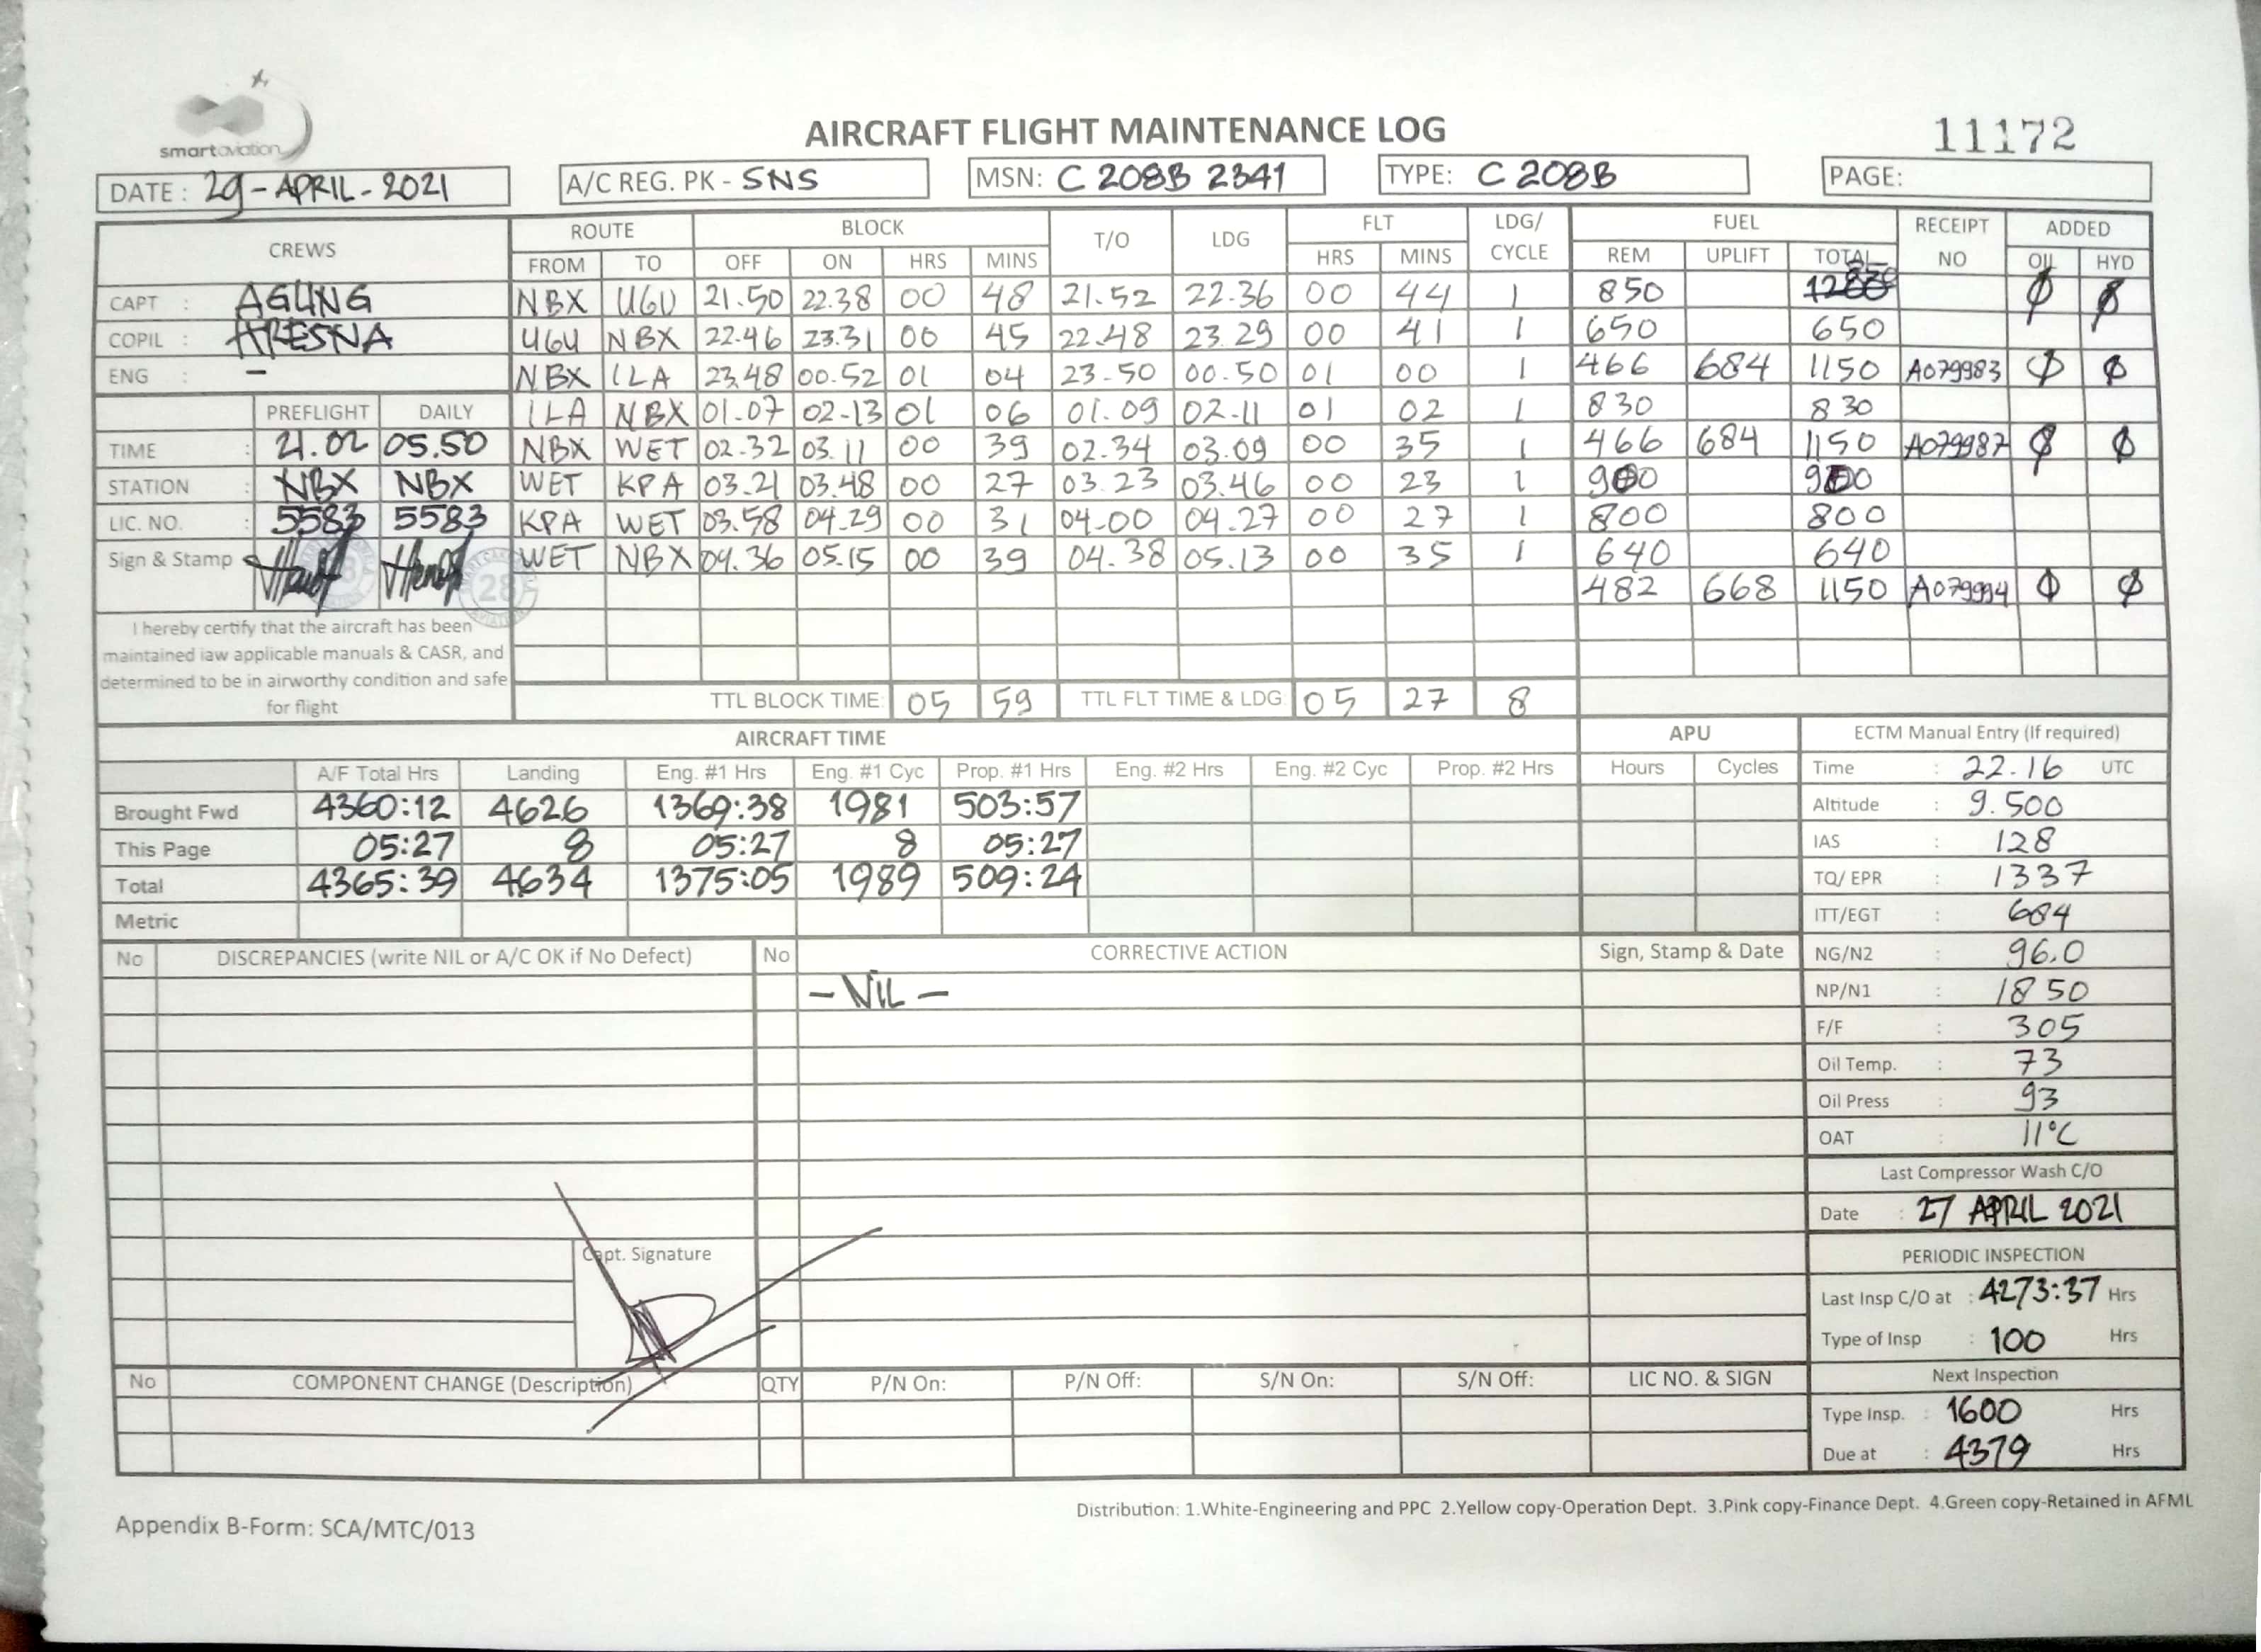 smartaviation
AIRCRAFT FLIGHT MAINTENANCE LOG
11172
DATE : 29-APRIL-2021 A/C REG. PK - SNS MSN: C 208B 2341 TYPE: C 208B PAGE:
CREWS ROUTE BLOCK T/O LDG FLT LDG/ CYCLE FUEL RECEIPT NO ADDED
FROM TO OFF ON HRS MINS HRS MINS REM UPLIFT TOTAL OIL HYD
CAPT : AGUNG NBX UGU 21.50 22.38 00 48 21.52 22.36 00 44 1 850 Ø Ø
COPIL : KRESNA UGU NBX 22.46 23.31 00 45 22.48 23.29 00 41 1 650 650
ENG : – NBX ILA 23.48 00.52 01 04 23.50 00.50 01 00 1 466 684 1150 A079983 Ø Ø
PREFLIGHT DAILY ILA NBX 01.07 02.13 01 06 01.09 02.11 01 02 1 830 830
TIME : 21.02 05.50 NBX WET 02.32 03.11 00 39 02.34 03.09 00 35 1 466 684 1150 A079987 Ø Ø
STATION : NBX NBX WET KPA 03.21 03.48 00 27 03.23 03.46 00 23 1
LIC. NO. : 5583 5583 KPA WET 03.58 04.29 00 31 04.00 04.27 00 27 1 800 800
Sign & Stamp WET NBX 04.36 05.15 00 39 04.38 05.13 00 35 1 640 640
28
482 668 1150 A079994 Ø Ø
I hereby certify that the aircraft has been
maintained iaw applicable manuals & CASR, and
determined to be in airworthy condition and safe
for flight
TTL BLOCK TIME: 05 59 TTL FLT TIME & LDG 05 27 8
AIRCRAFT TIME APU ECTM Manual Entry (If required)
A/F Total Hrs Landing Eng. #1 Hrs Eng. #1 Cyc Prop. #1 Hrs Eng. #2 Hrs Eng. #2 Cyc Prop. #2 Hrs Hours Cycles Time : 22.16 UTC
Brought Fwd 4360:12 4626 1369:38 1981 503:57 Altitude : 9.500
This Page 05:27 8 05:27 8 05:27 IAS : 128
Total 4365:39 4634 1375:05 1989 509:24 TQ/ EPR : 1337
Metric ITT/EGT : 684
No DISCREPANCIES (write NIL or A/C OK if No Defect) No CORRECTIVE ACTION Sign, Stamp & Date NG/N2 : 96.0
– NIL – NP/N1 : 1850
F/F : 305
Oil Temp. : 73
Oil Press : 93
OAT : 11°C
Last Compressor Wash C/O
Date : 27 APRIL 2021
Capt. Signature
PERIODIC INSPECTION
Last Insp C/O at : 4273:37 Hrs
Type of Insp : 100 Hrs
No COMPONENT CHANGE (Description) QTY P/N On: P/N Off: S/N On: S/N Off: LIC NO. & SIGN Next Inspection
Type Insp. : 1600 Hrs
Due at : 4379 Hrs
Distribution: 1.White-Engineering and PPC 2.Yellow copy-Operation Dept. 3.Pink copy-Finance Dept. 4.Green copy-Retained in AFML
Appendix B-Form: SCA/MTC/013